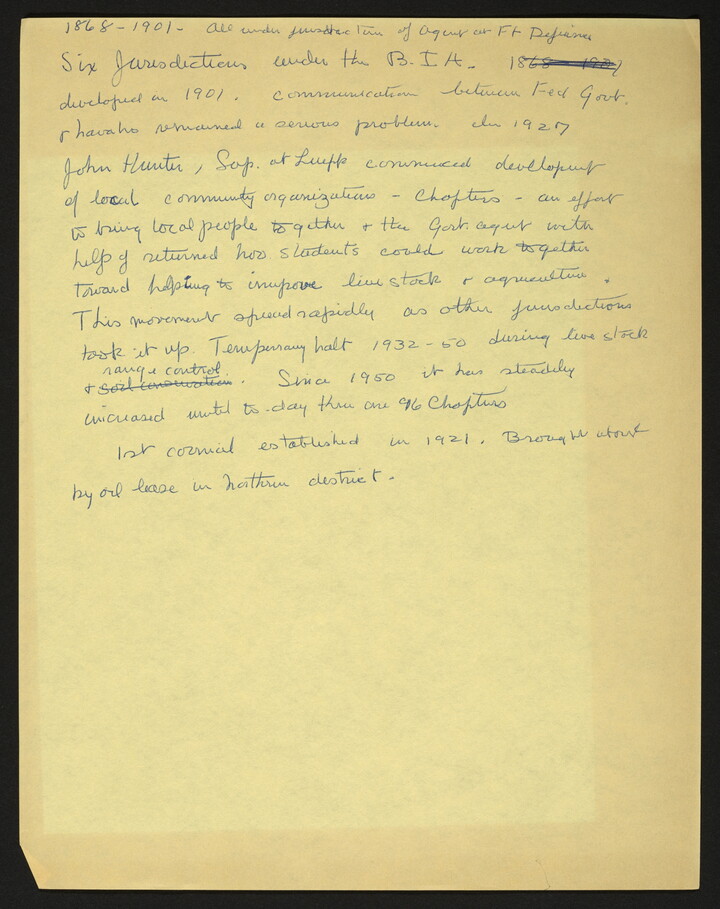 1868 - 1901 - All under jurisdiction of Agent at Ft Defiance
Six Jurisdictions under the B.I.A. 1868 - 1901
developed in 1901. Communication between Fed Govt.
& Navaho remained a serious problem. In 1927
John Hunter, Sup. at Leupp commenced development
of local community organizations - Chapters - an effort
to bring local people together & the Govt. agent with
help of returned students could work together
toward helping to improve live stock & agriculture.
This movement spread rapidly as other jurisdictions
took it up. Temporary halt 1932 - 50 during live stock
range control
& soil conservation. Since 1950 it has steadily
increased until to-day there are 96 Chapters
1st council established in 1921. Brought about
by oil lease in Northern district.